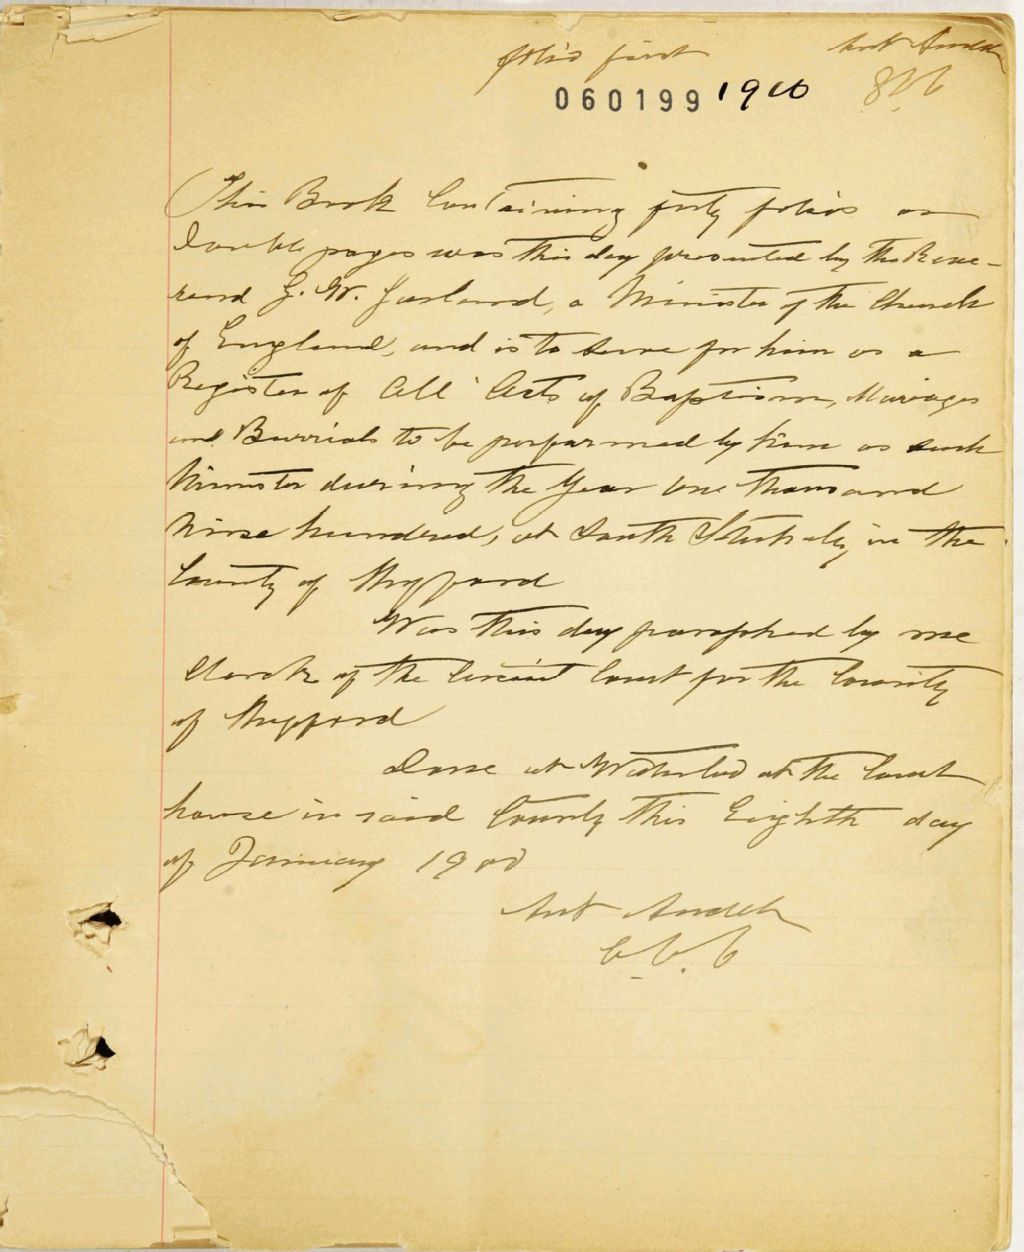 folio first
060199 1900
This Book Containing forty folios or
Double pages was this day presented by the Reve-
rend G. W. Garland, a Minister of the Church
of England, and is to serve for him as a
Register of All Acts of Baptism, Mariages
and Burrials to be performed by him as such
Minister during the Year one thousand
Nine hundred, at South Stukely in the
County of Shefford
Was this day paraphed by me
Clerk of the Circuit Court for the County
of Shefford
Done at Waterloo at the Court
house in said County this Eighth day
of January 1900
C.C.C